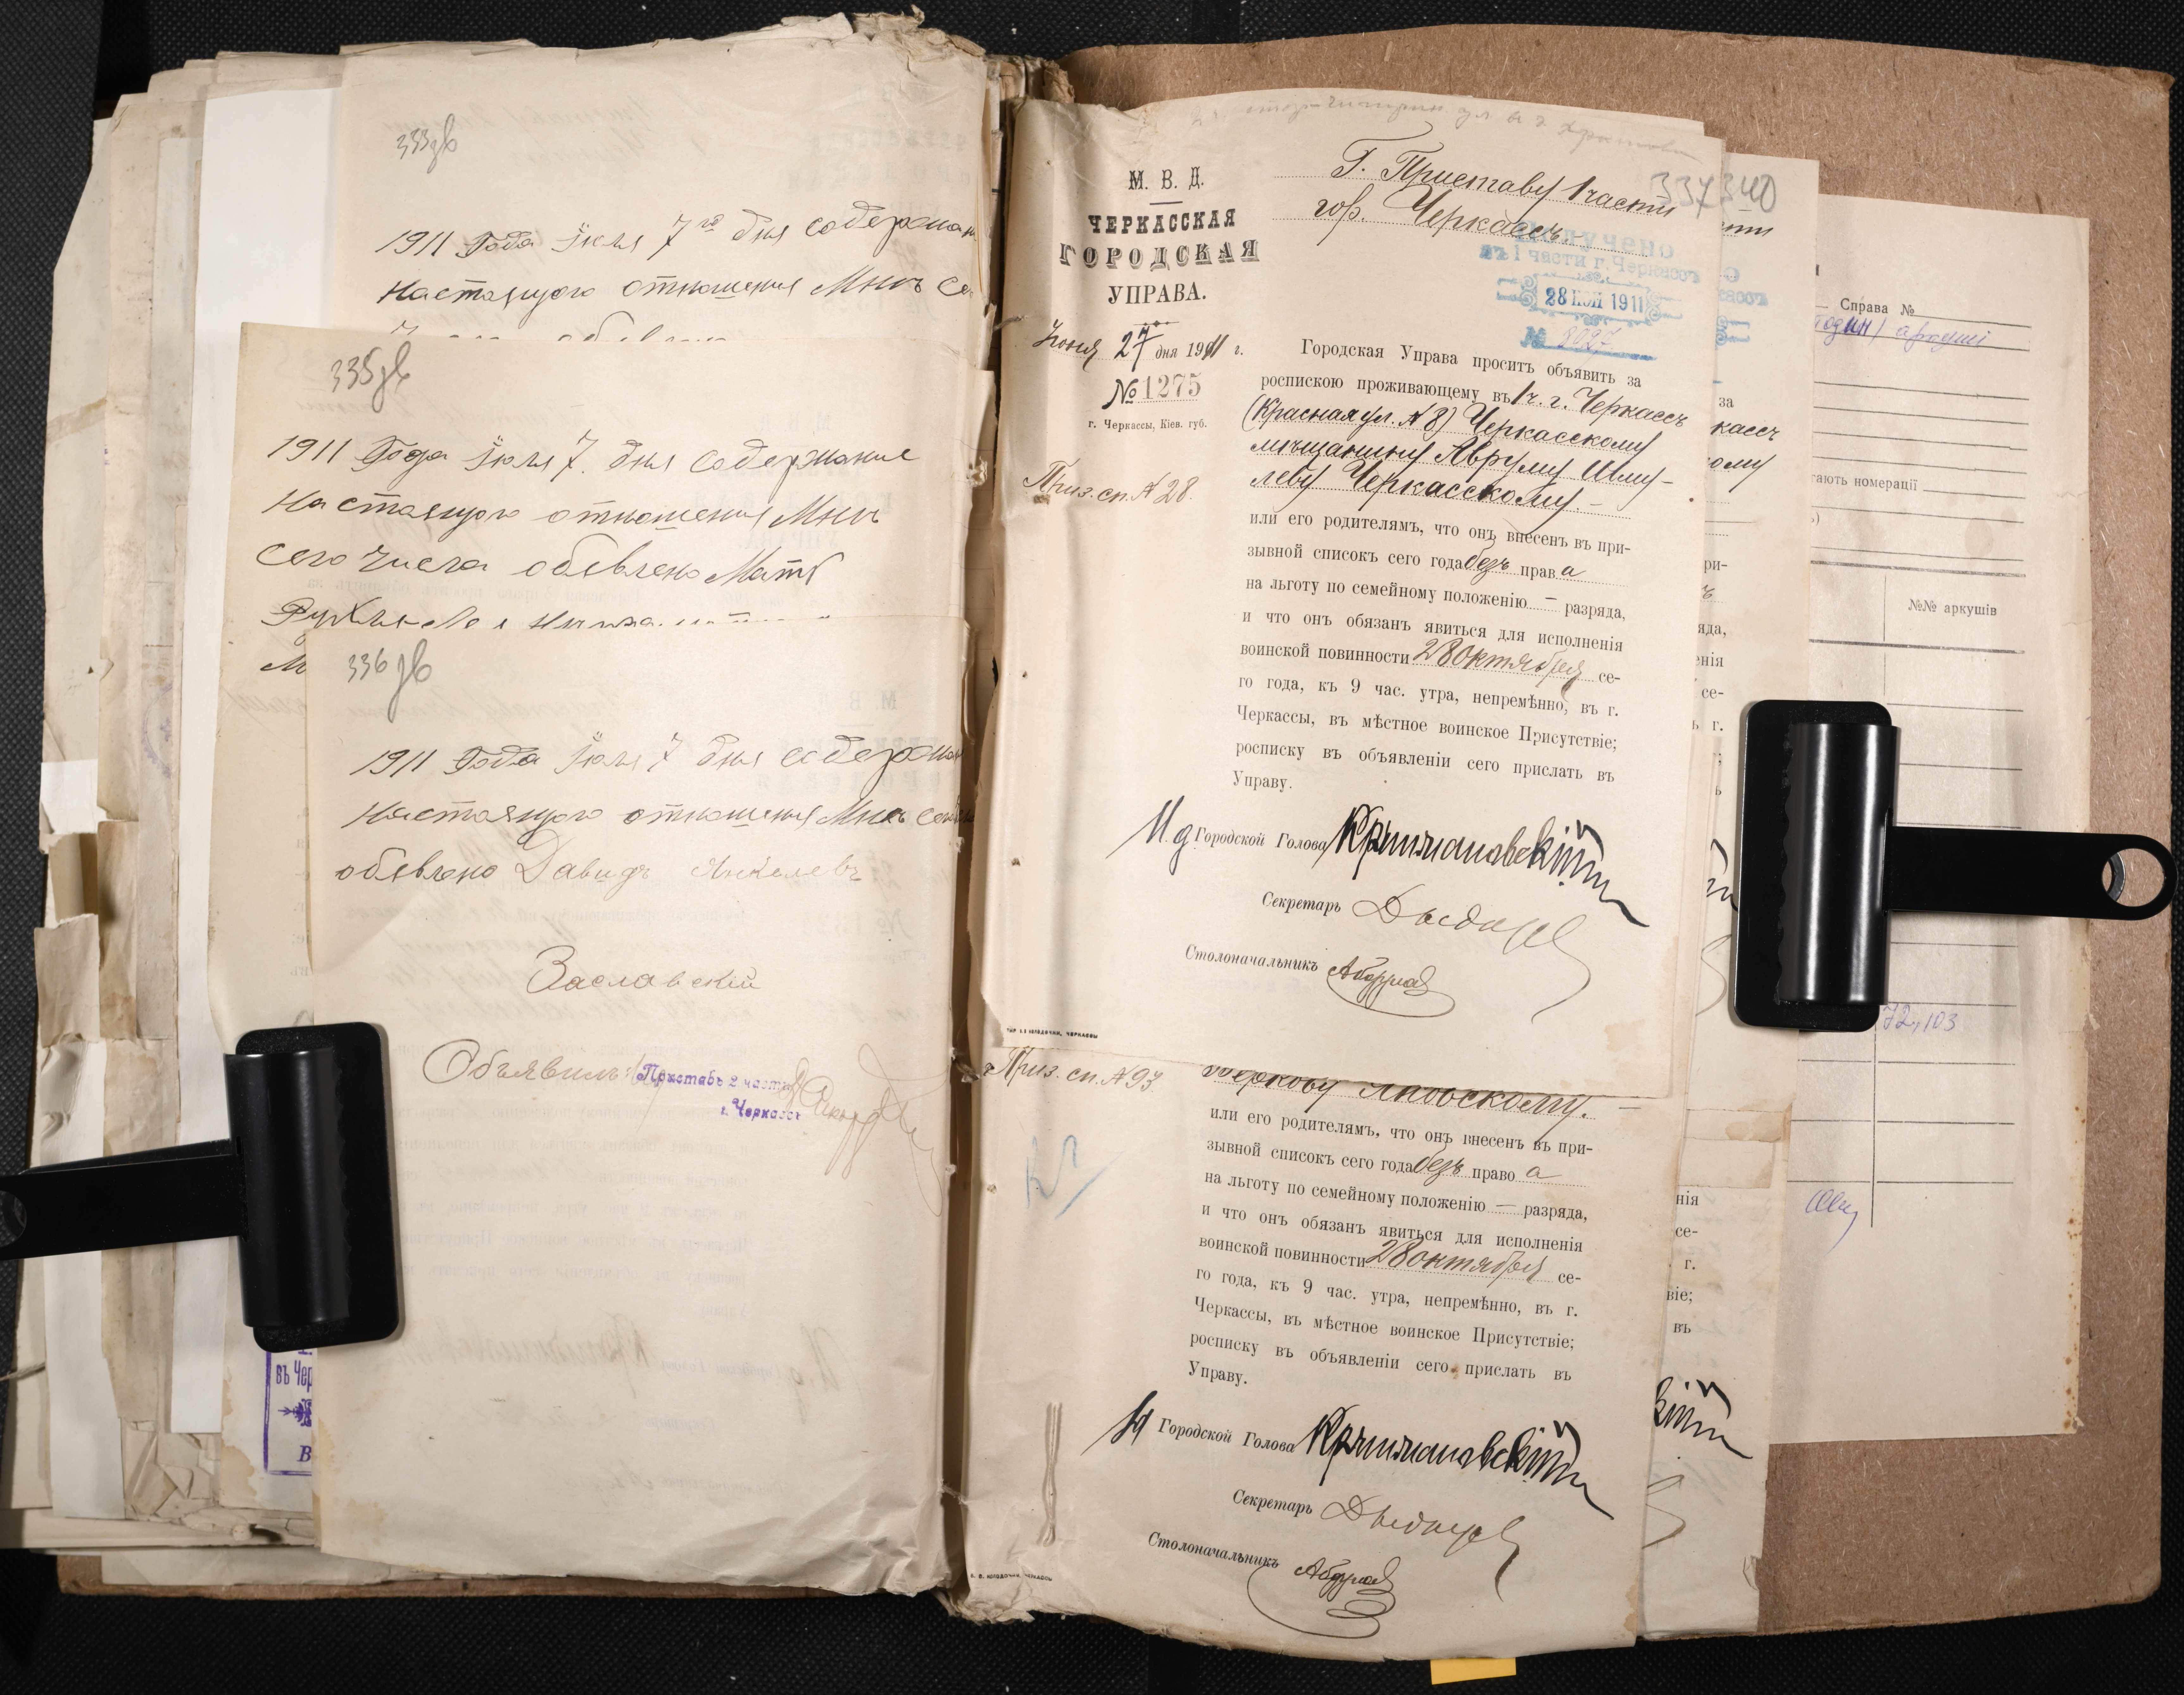 333зв
1911 Года Іюля 7го дня содержан
настоящого отношения Мнѣ се
335зв
1911 Года Іюля 7. дня содержание
настоящого отношения Мнѣ
сего числа обявлено Мать
336зв
1911 Года Іюля 7 дня содержан
настоящого отношения Мнѣ
обявлено Давидъ Янкелевъ
Заславскій
Объявилъ:
Приставъ 2 части
г. Черкассъ
въ Чер
В
337 340
М. В. Д.
ЧЕРКАССКАЯ
ГОРОДСКАЯ
УПРАВА.
Июня 27 дня 1911 г.
№ 1275
г. Черкассы, Кіев. губ.
Приз. сп. № 28.
Г. Приставу 1 части
гор. Черкассъ.
Получено
въ 1 части г. Черкассъ
28 ІЮН 1911
№
Городская Управа проситъ объявить за
роспискою проживающему въ 1 ч. г. Черкассъ
(Красная ул. № 8) Черкасскому
мѣщанину Аврумy Шму-
леву Черкасскому. —
или его родителямъ, что онъ внесенъ въ при-
зывной списокъ сего года безъ права
на льготу по семейному положенію — разряда,
и что онъ обязанъ явиться для исполненія
воинской повинности 28 октября се-
го года, къ 9 час. утра, непремѣнно, въ г.
Черкассы, въ мѣстное воинское Присутствіе;
росписку въ объявленіи сего прислать въ
Управу.
И. д. Городской Голова
Секретарь
Столоначальникъ
Приз. сп. № 93.
Беркову Яновскому. —
или его родителямъ, что онъ внесенъ въ при-
зывной списокъ сего года безъ право а
на льготу по семейному положенію — разряда,
и что онъ обязанъ явиться для исполненія
воинской повинности 28 октября се-
го года, къ 9 час. утра, непремѣнно, въ г.
Черкассы, въ мѣстное воинское Присутствіе;
росписку въ объявленіи сего прислать въ
Управу.
Городской Голова
Секретарь
Столоначальникъ
за
кассъ
ому
ри-
яда,
енія
се-
ъ г.
нія
се-
г.
віе;
въ
Справа №
аркуші
гають номерації
№№ аркушів
72, 103